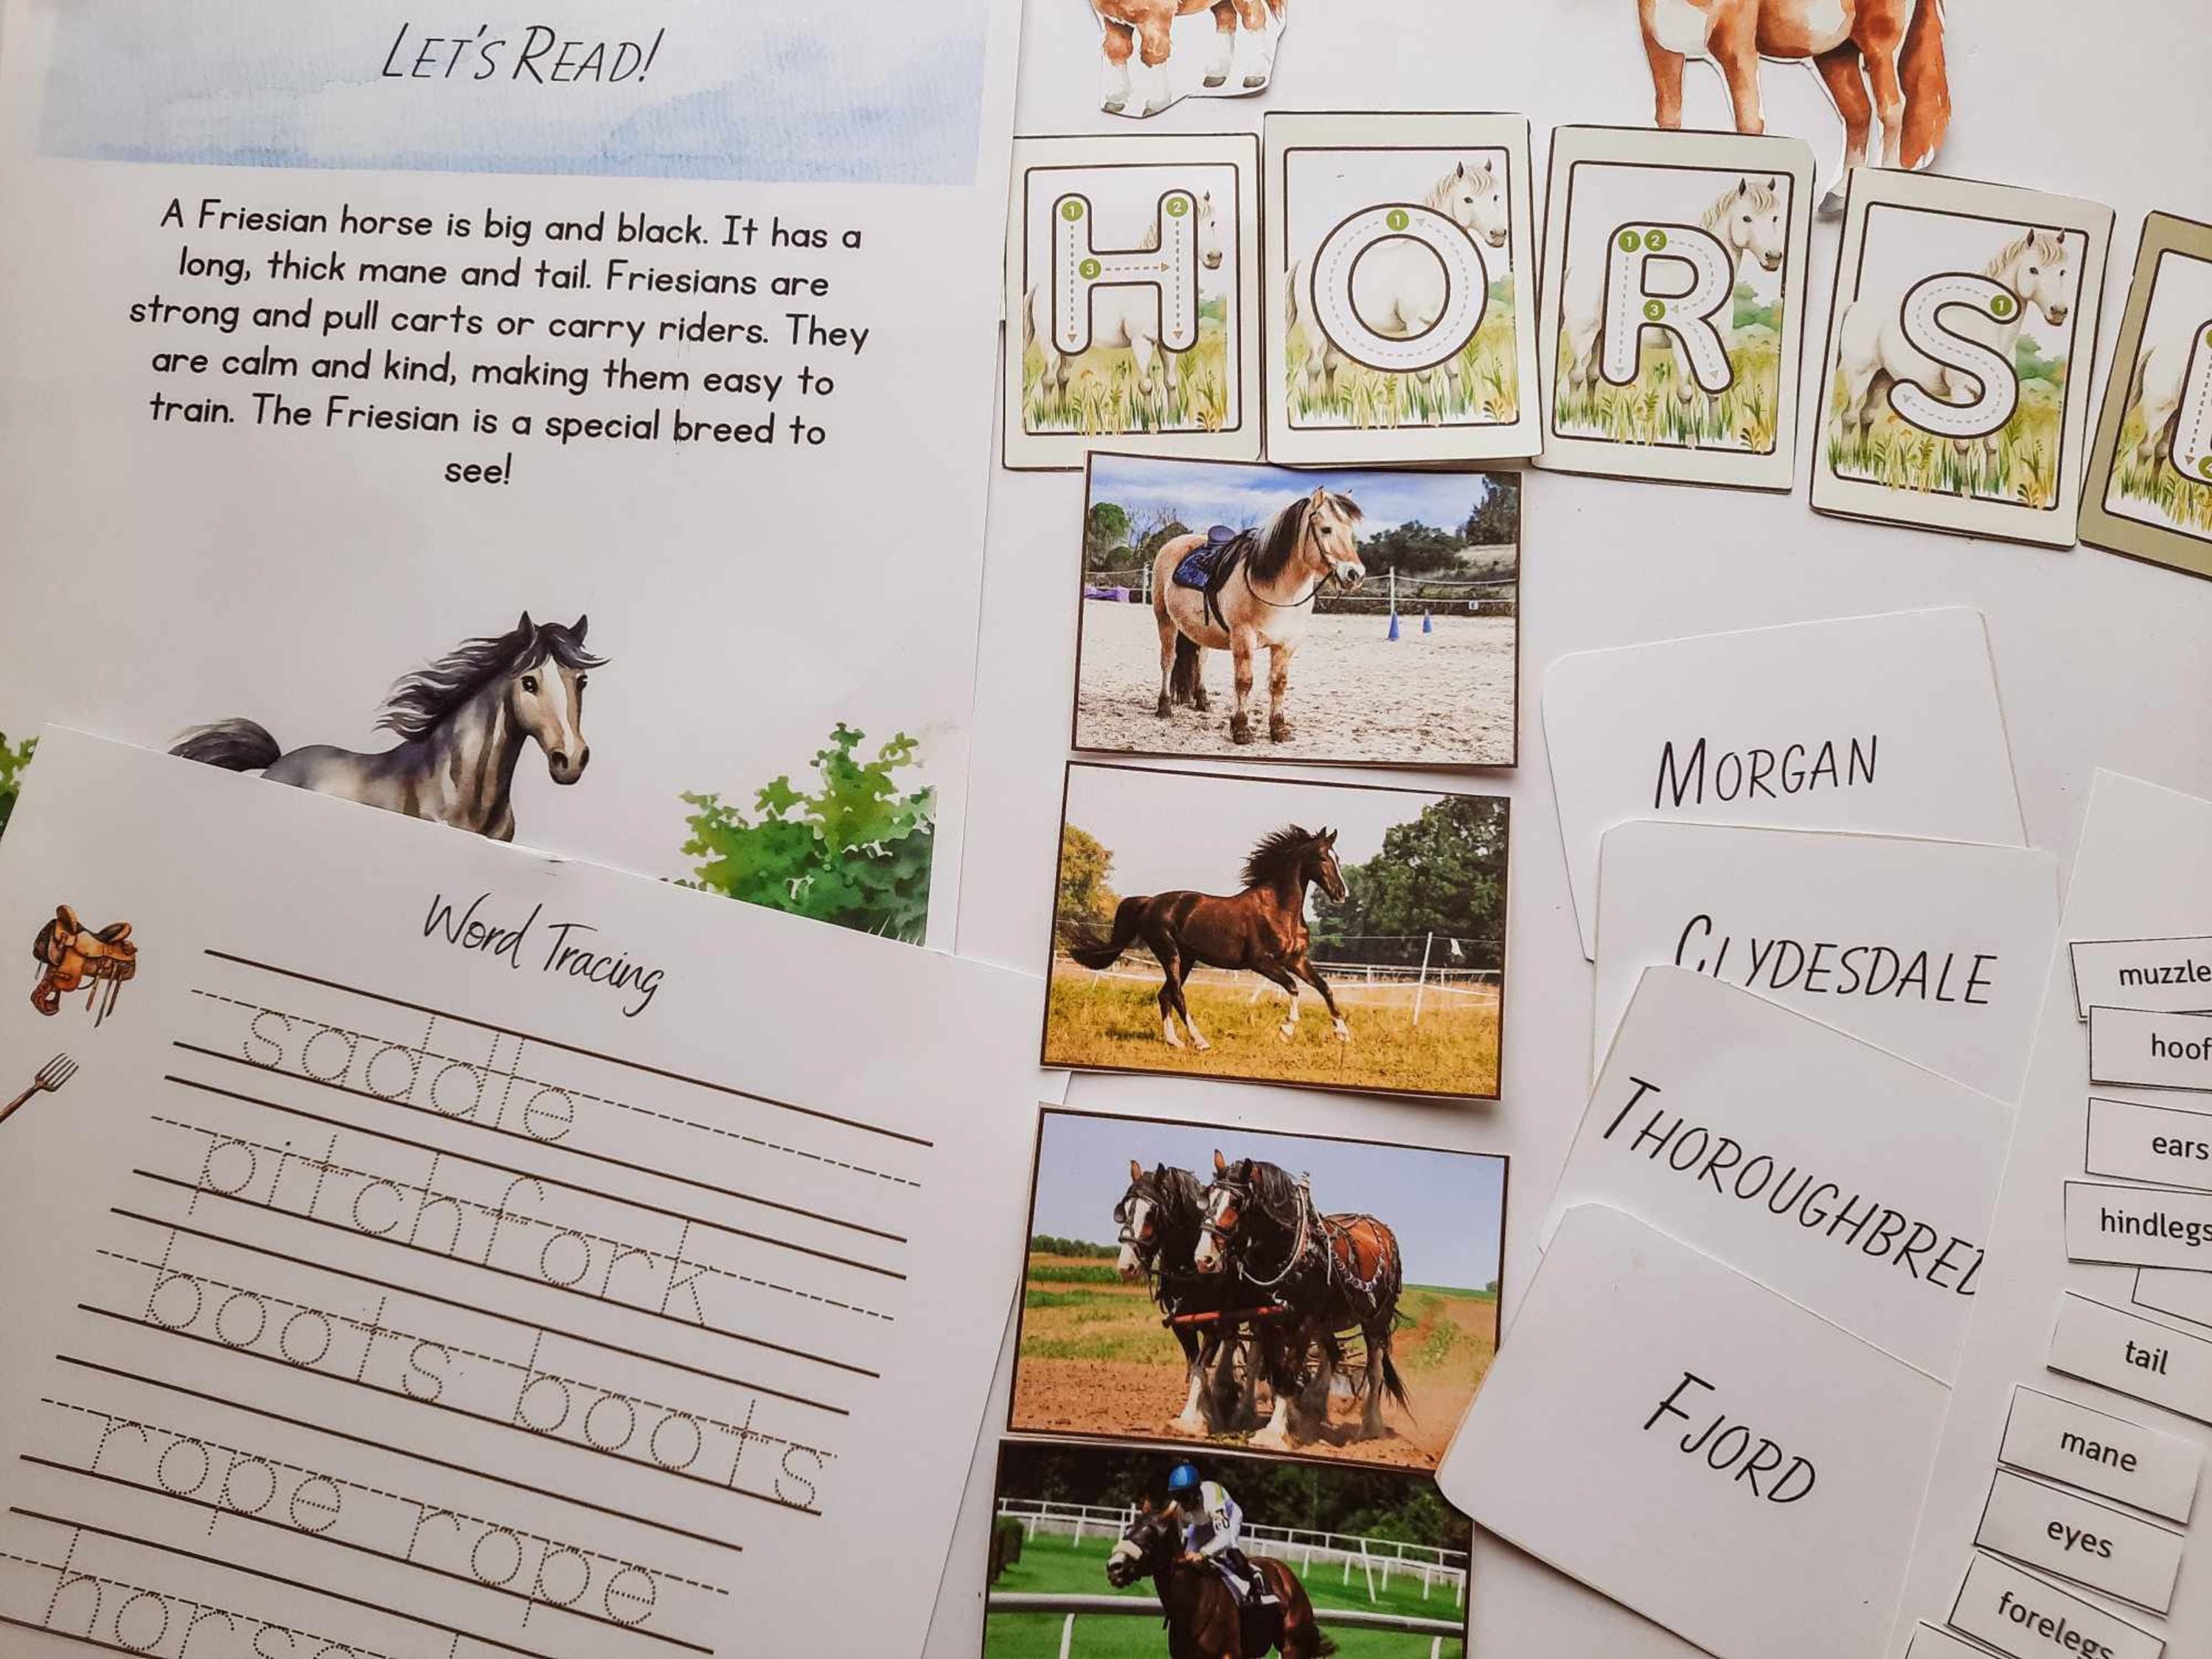 LET'S READ!
A Friesian horse is big and black. It has a
long, thick mane and tail. Friesians are
strong and pull carts or carry riders. They
are calm and kind, making them easy to
train. The Friesian is a special breed to
see!
Word Tracing
saddle
pitchfork
boots boots
rope rope
H O R S
1 2 3
1
1 2 3
1
MORGAN
CLYDESDALE
THOROUGHBRED
FJORD
muzzle
hoof
ears
hindlegs
tail
mane
eyes
forelegs